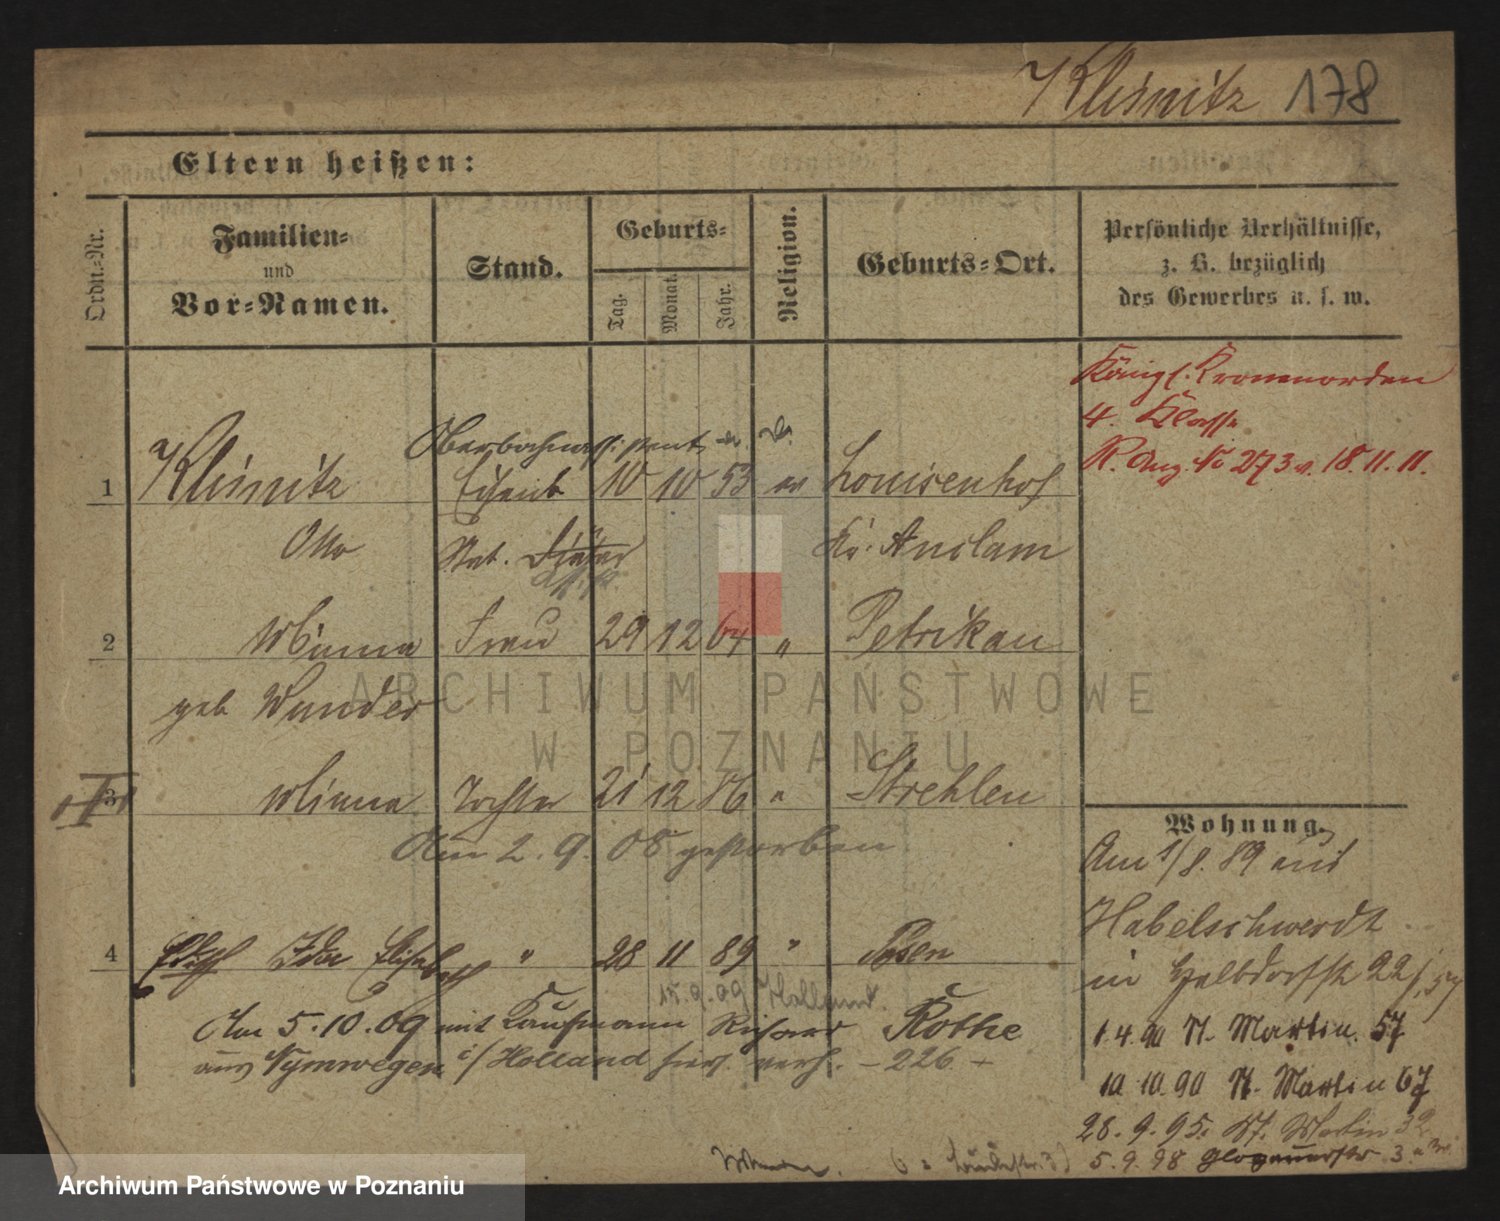 Klemnitz 178
Eltern heißen:
Ordn.-Nr.
Familien-
und
Vor-Namen.
Stand.
Geburts-
Tag.
Monat.
Jahr.
Religion.
Geburts-Ort.
Persönliche Verhältnisse,
z. B. bezüglich
des Gewerbes u. s. w.
Königl. Kronenorden
4. Klasse
R. Anz. No 273 v. 18.11.11.
Oberbahnassistent a. D.
1 Klemnitz Eisenb 10 10 53 ev Louisenhof
Otto Stat. Kr. Anclam
2 Minna Frau 29 12 64 " Petrikau
geb Wunder
3 Minna Tochter 21 12 86 " Strehlen
Am 2. 9. 08 gestorben
4 Ida Elisabeth " 28 11 89 " Posen
15.9.09 Holland.
Am 5.10.09 mit Kaufmann Richard Rothe
aus Nymwegen i/Holland hier verh. - 226 -
Wohnung.
Am 1/8. 89 aus
Habelschwerdt
in Halbdorfstr 22/
1.4.90 St. Martin. 57
10 10.90 St. Martin 67
28. 9. 95. St. Martin 32
5. 9. 98 Glogauerstr 3
ARCHIWUM PAŃSTWOWE
W POZNANIU
Archiwum Państwowe w Poznaniu